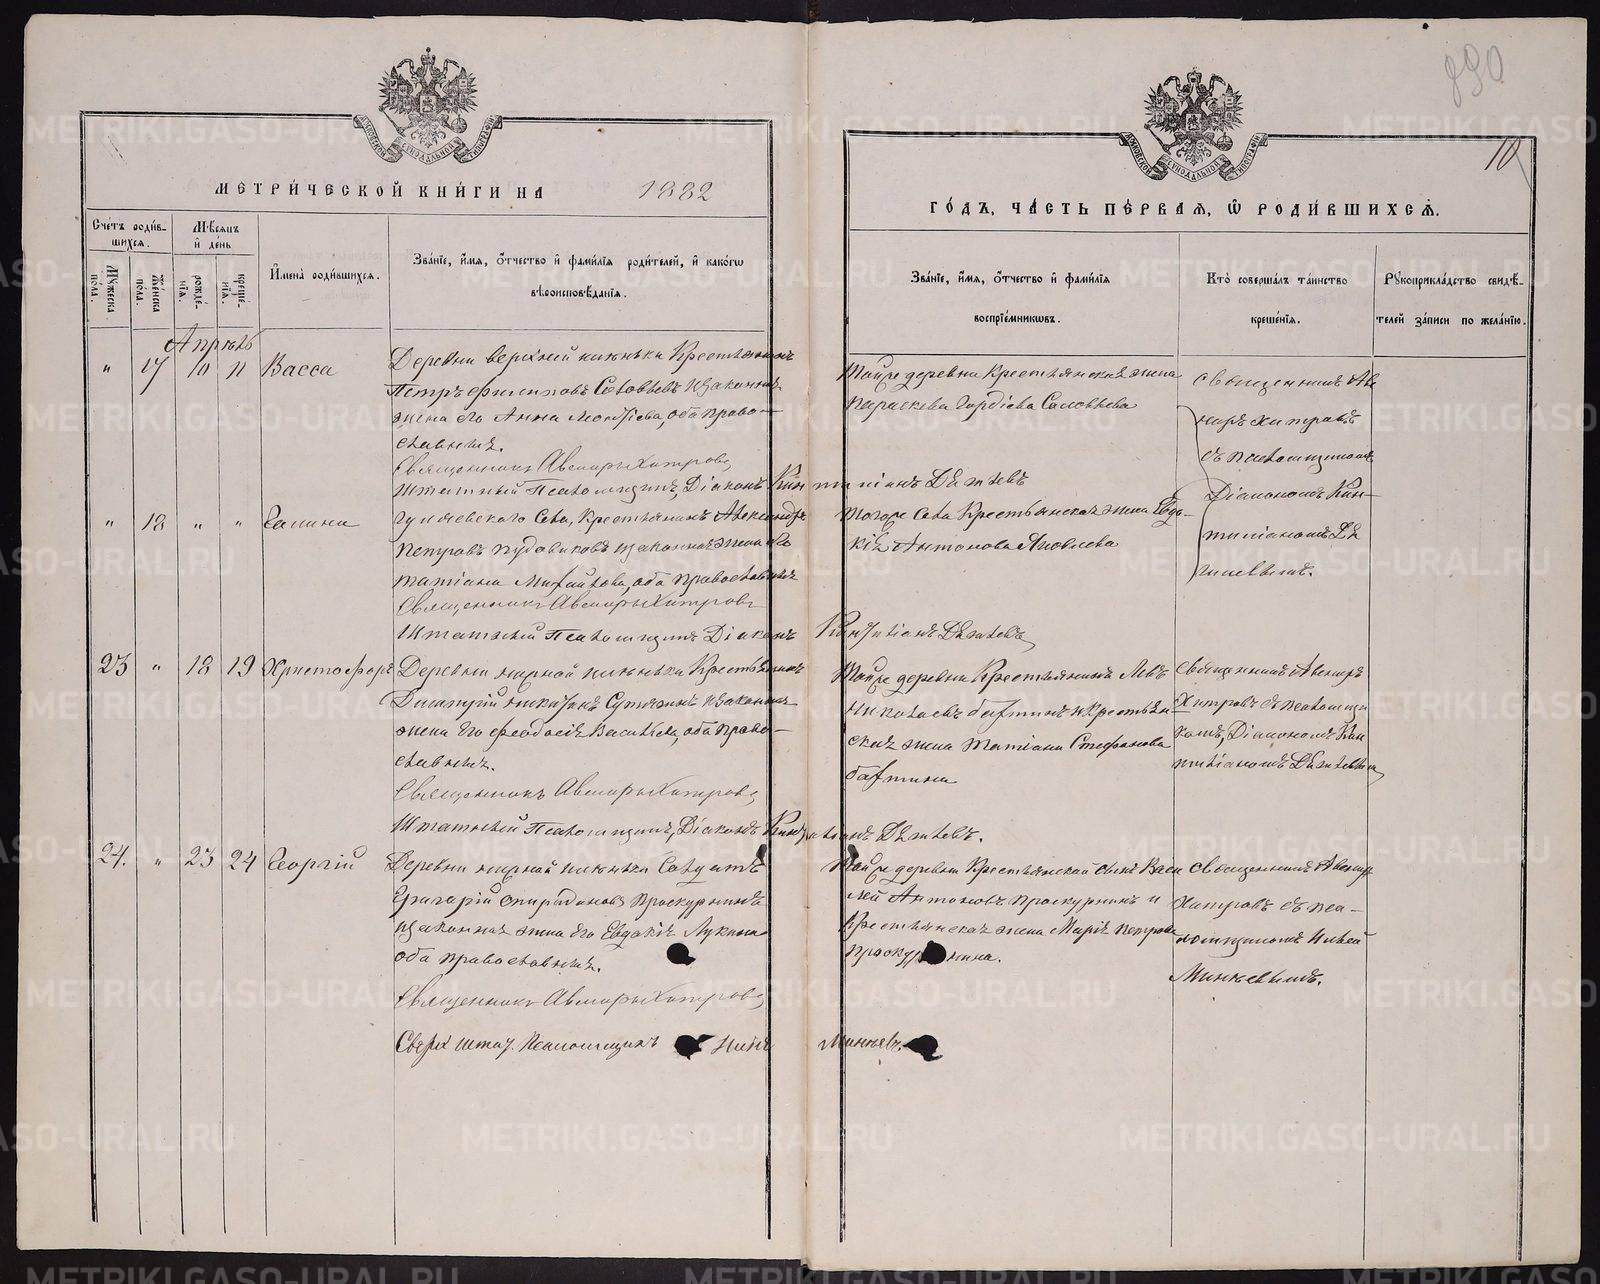 890
10
МЕТРИ́ЧЕСКОЙ КНИ́ГИ НА 1882
ГО́ДЪ, ЧА́СТЬ ПЕ́РВАЯ, Ѡ РОДИ́ВШИХСѦ.
Сче́тъ роди́в-
шихсѧ.
Мѣ́сѧцъ
и҆ де́нь
Мꙋ́жеска
по́ла.
Же́нска
по́ла.
рожде́-
нїѧ.
креще́-
нїѧ.
И҆мена̀ роди́вшихсѧ.
Зва́нїе, и҆́мѧ, ѻ҆́тчество и҆ фами́лїѧ роди́телей, и҆ како́гѡ
вѣроисповѣ́данїѧ.
Зва́нїе, и҆́мѧ, ѻ҆́тчество и҆ фами́лїѧ
воспрїе́мникѡвъ.
Кто̀ соверша́лъ та́инство
креще́нїѧ.
Рꙋкоприкла́дство свидѣ́-
телей за́писи по жела́нїю.
Апрѣль
" 17 10 11 Васса
Деревни верхней
Крестьянинъ
Петръ Филипповъ Соловьевъ и законная
жена его Анна Леонтіева, оба право-
славные.
Священникъ Авениръ Хитровъ
Штатный Псаломщикъ, Діаконъ
Той же деревни Крестьянская жена
Параскева Гордіева Соловьева
Священникъ Аве
ниръ Хитровъ
съ Псаломщикомъ
Діакономъ Кин-
тиліаномъ
" 18 " " Галина
села, Крестьянинъ Александръ
Петровъ Пудовиковъ и законная жена его
Татіана Михайлова, оба православные
Священникъ Авениръ Хитровъ
Штатный Псаломщикъ Діаконъ
Тогоже села Крестьянская жена Евдо-
кія Антонова Яковлева
23 " 18 19 Христофоръ
Деревни
Крестьянинъ
Димитрій
и законная
жена его Феодосія Васильева, оба право-
славные.
Священникъ Авениръ Хитровъ
Штатный Псаломщикъ, Діаконъ
Той же деревни Крестьянинъ Левъ
Николаевъ
и Крестьян-
ская жена Татіана Стефанова
Священникъ Авениръ
Хитровъ съ Псаломщи
комъ, Діакономъ Кин
тиліаномъ
24. " 23 24 Георгій
Деревни
Солдатъ
Григорій Спиридоновъ Проскурнинъ
и законная жена его Евдокія Лукина
оба православные.
Священникъ Авениръ Хитровъ
Сверх штат. Псаломщикъ
Минѣевъ.
Той же деревни Крестьянскій сынъ Васи
лей Антоновъ Проскурнинъ и
Крестьянская жена Марія Петрова
Проскурнина.
Священникъ Авениръ
Хитровъ съ Пса-
ломщикомъ Ильей
Минѣевымъ.
METRIKI.GASO-URAL.RU